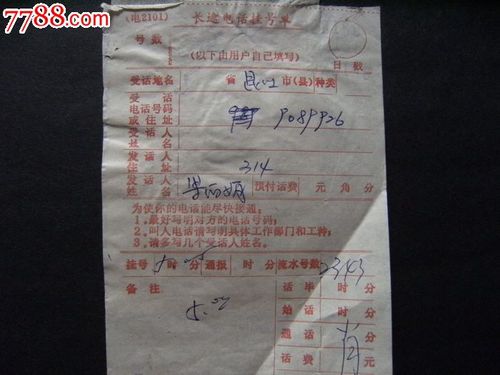 7788.com
(电2101)
长途电话挂号单
号数
(以下由用户自己填写)
日戳
受话地名
省
市(县)
种类
受话
电话号码
或住址
9089926
受话人
姓名
发话人
住址
314
发话人
姓名
预付话费
元角分
为使你的电话能尽快接通:
1.最好写明对方的电话号码;
2.叫人电话请写明具体工作部门和工种;
3.请多写几个受话人姓名。
挂号
时
分
通报
时
分
流水号数
2343
备注
话毕
时
分
始话
时
分
通话
分
话费
元
7788.com